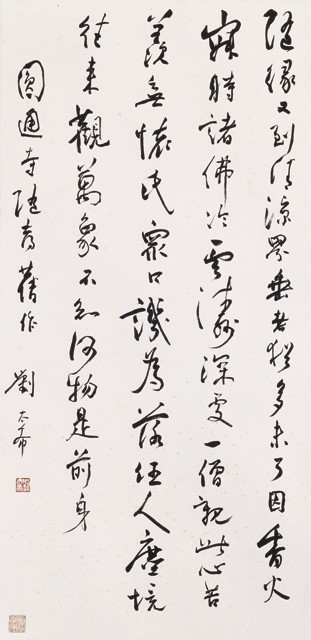 隨緣又到清涼界垂老猶多未了因香火
寂時諸佛冷雲林深處一僧親此心苦
羨無懷氏眾口譏為落伍人塵境
往來觀萬象不知何物是前身
圓通寺隨喜舊作 劉太希